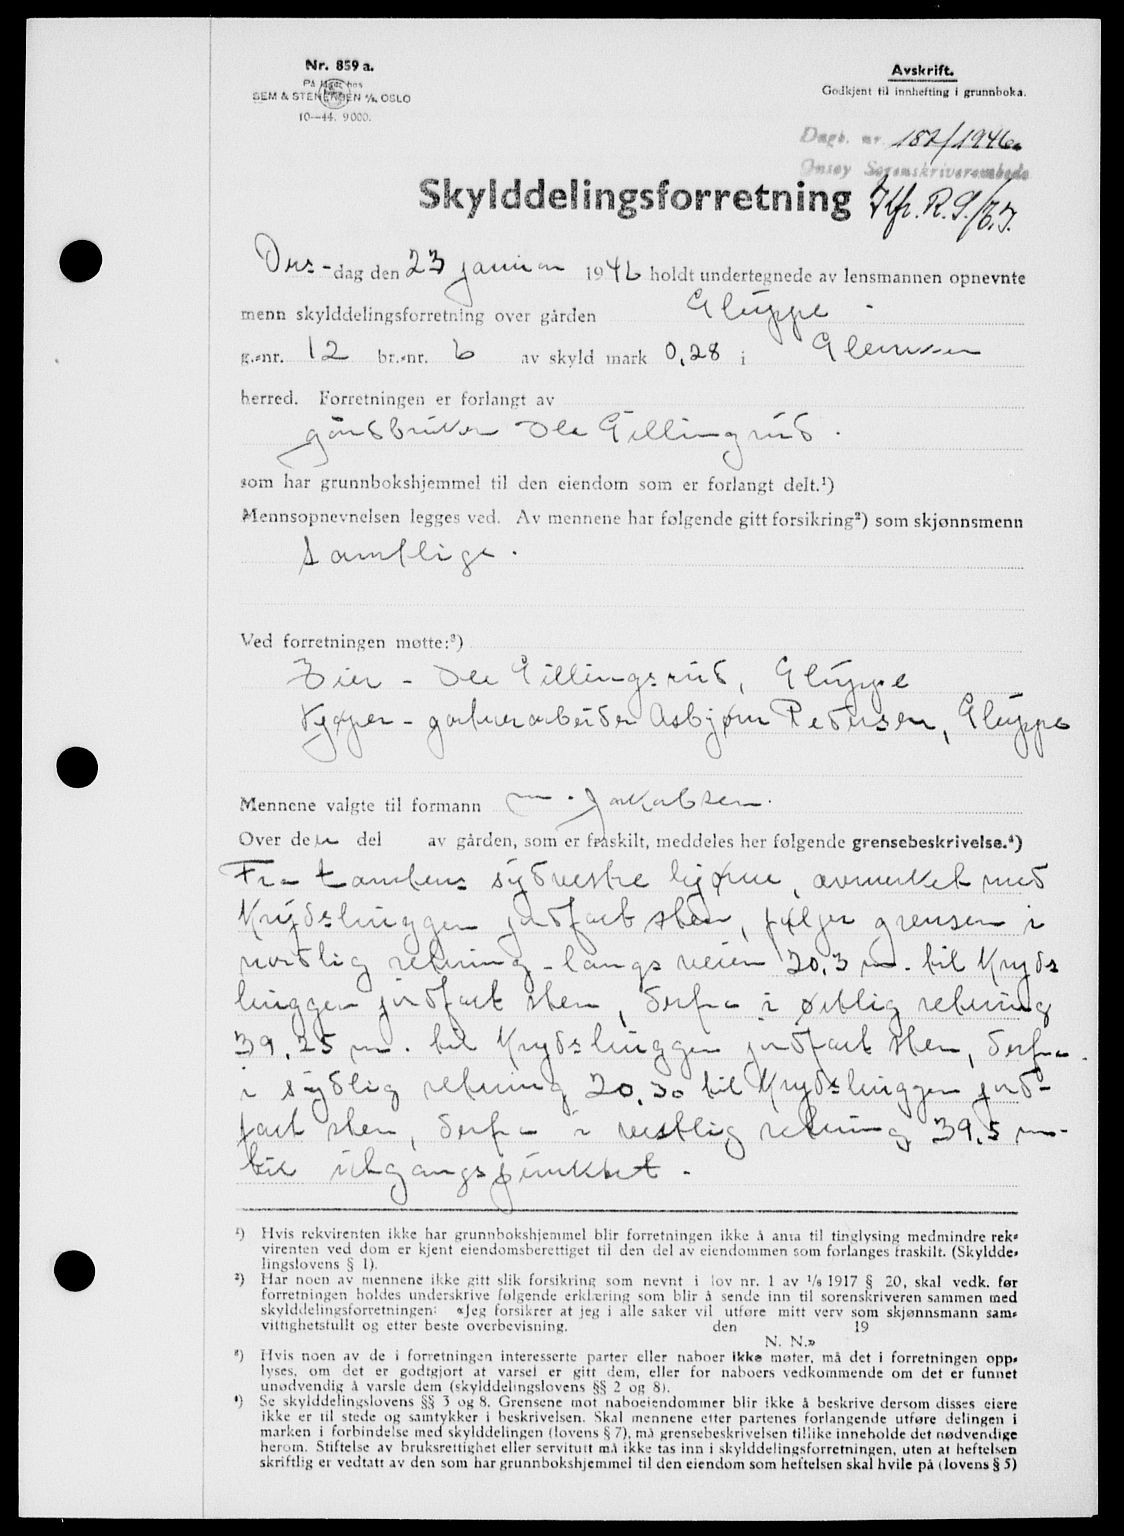 Nr. 859 a.
På lager hos
SEM & STENERSEN A/S, OSLO
10—44. 9000.
Avskrift.
Godkjent til innhefting i grunnboka.
Dagb. nr. 182/1946.
Onsøy Sorenskriverembede
Skylddelingsforretning Jfr. R.G./E.J.
Ons-dag den 23 januar 1946 holdt undertegnede av lensmannen opnevnte
menn skylddelingsforretning over gården Gluppe -
g.-nr. 12 br.-nr. 6 av skyld mark 0,28 i Glemmen
herred. Forretningen er forlangt av
gårdbruker Ole Gillingsrud.
som har grunnbokshjemmel til den eiendom som er forlangt delt.¹)
Mennsopnevnelsen legges ved. Av mennene har følgende gitt forsikring²) som skjønnsmenn
samtlige.
Ved forretningen møtte:³)
Eier - Ole Gillingsrud, Gluppe
Kjøper - gartnerarbeider Asbjørn Pedersen, Gluppe
Mennene valgte til formann M. Jakobsen.
Over den del av gården, som er fraskilt, meddeles her følgende grensebeskrivelse.⁴)
Fra tomtens sydvestre hjørne, avmerket med
krydshuggen jordfast sten, følger grensen i
nordlig retning - langs veien 20,3 m. til kryds
huggen jordfast sten, derfra i østlig retning
39,25 m. til krydshuggen jordfast sten, derfra
i sydlig retning 20,30 til krydshuggen jord-
fast sten, derfra i vestlig retning 39,5 m.
til utgangspunktet.
¹) Hvis rekvirenten ikke har grunnbokshjemmel blir forretningen ikke å anta til tinglysing medmindre rek-
virenten ved dom er kjent eiendomsberettiget til den del av eiendommen som forlanges fraskilt. (Skyldde-
lingslovens § 1).
²) Har noen av mennene ikke gitt slik forsikring som nevnt i lov nr. 1 av 1/6 1917 § 20, skal vedk. før
forretningen holdes underskrive følgende erklæring som blir å sende inn til sorenskriveren sammen med
skylddelingsforretningen: «Jeg forsikrer at jeg i alle saker vil utføre mitt verv som skjønnsmann sam-
vittighetsfullt og etter beste overbevisning. den 19
N. N.»
³) Hvis noen av de i forretningen interesserte parter eller naboer ikke møter, må det i forretningen opp-
lyses, om det er godtgjort at varsel er gitt dem, eller for naboers vedkommende om det er funnet
unødvendig å varsle dem (skylddelingslovens §§ 2 og 8).
⁴) Se skylddelingslovens §§ 3 og 8. Grensene mot naboeiendommer blir ikke å beskrive dersom disses eiere
ikke er til stede og samtykker i beskrivelsen. Skal mennene etter partenes forlangende utføre delingen i
marken i forbindelse med skylddelingen (lovens § 7), må grensebeskrivelsen tillike inneholde det nødvendige
herom. Stiftelse av bruksrettighet eller servitutt må ikke tas inn i skylddelingsforretningen, uten at heftelsen
skriftlig er vedtatt av den som har grunnbokshjemmel til den eiendom som heftelsen skal hvile på (lovens § 5)